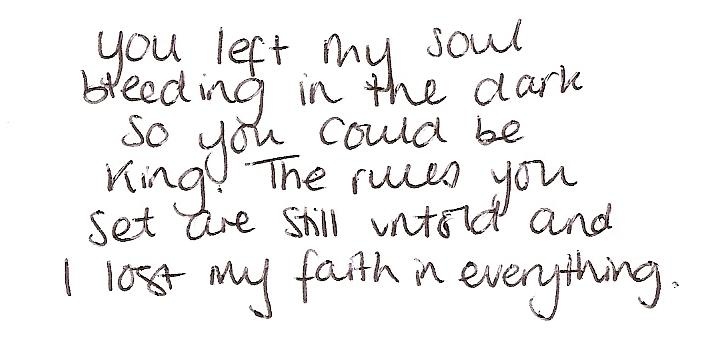 you left my soul
bleeding in the dark
so you could be
King. The rules you
set are still untold and
I lost my faith in everything.